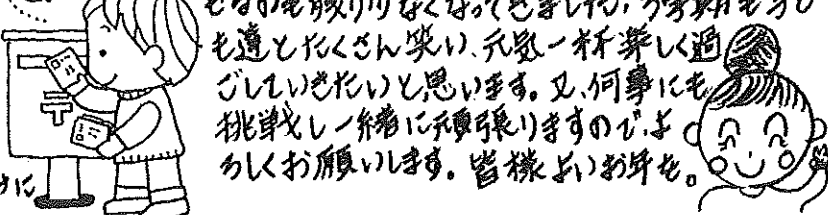 残りわずかなくなってきました。今学期も子ど
も達とたくさん笑い、元気一杯楽しく過
ごしていきたいと思います。又、何事にも
挑戦し一緒に頑張りますので、よ
ろしくお願いします。皆様よいお年を。
に